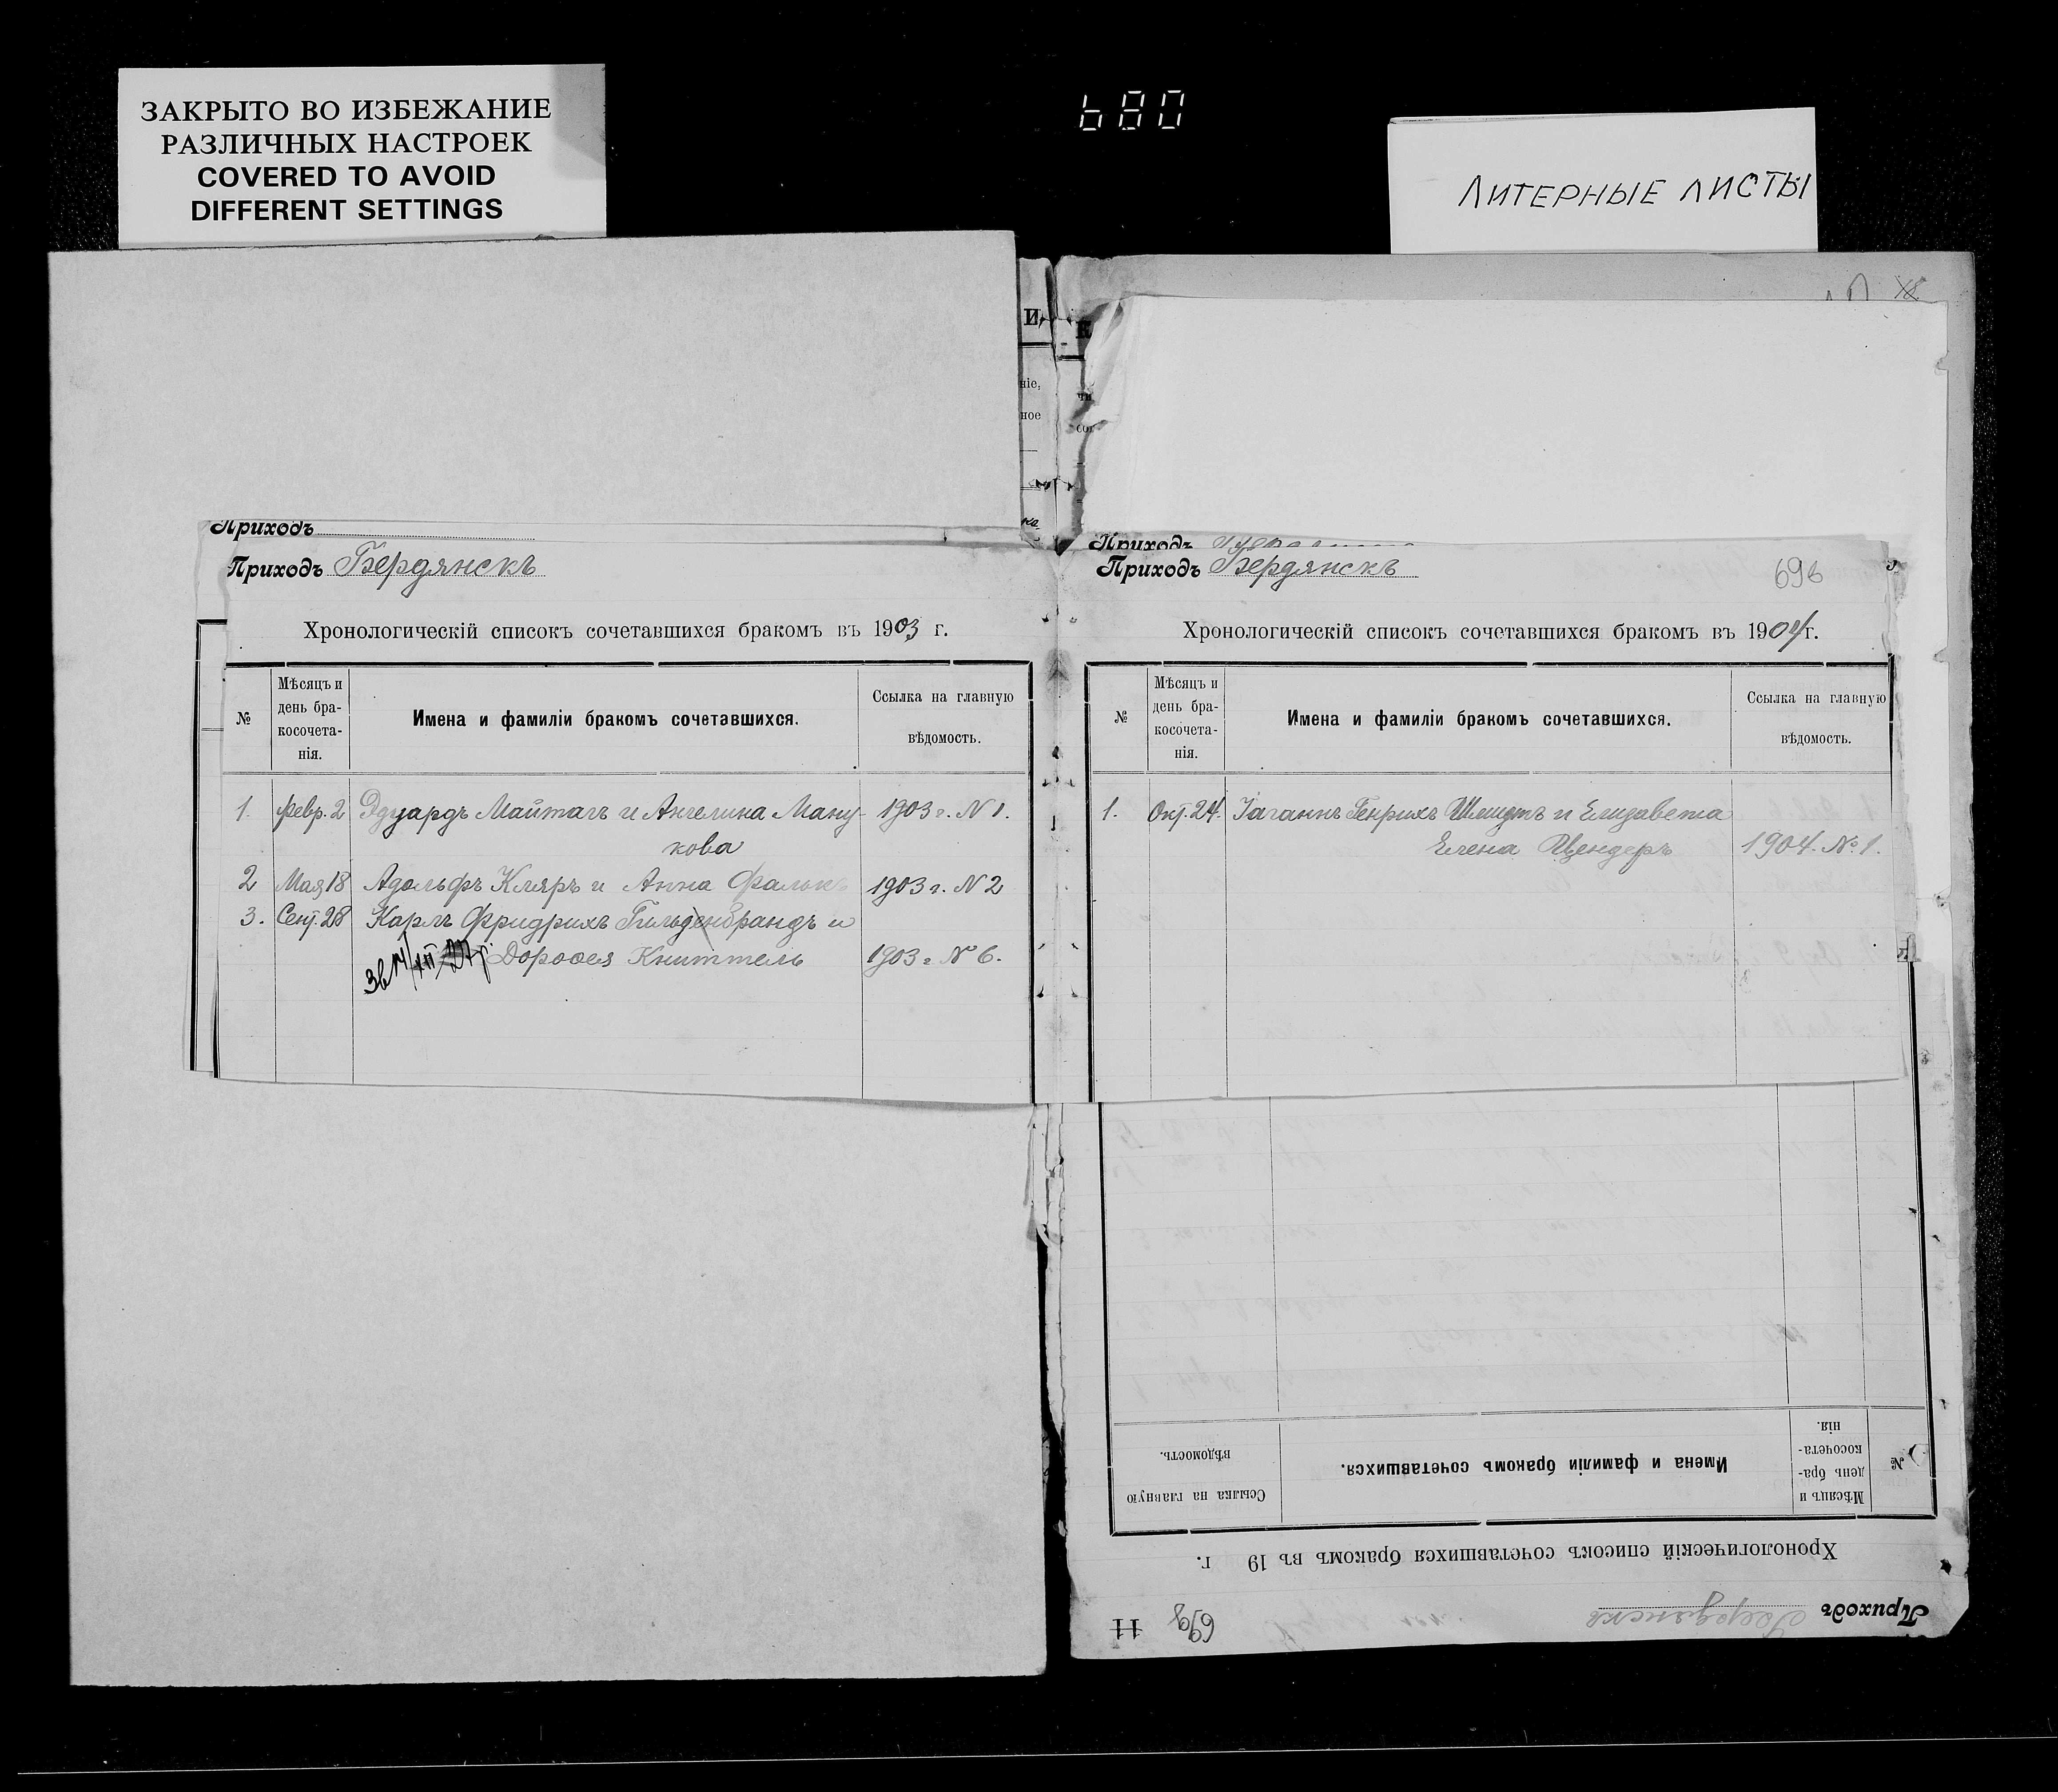 ЗАКРЫТО ВО ИЗБЕЖАНИЕ
РАЗЛИЧНЫХ НАСТРОЕК
COVERED TO AVOID
DIFFERENT SETTINGS
ЛИТЕРНЫЕ ЛИСТЫ
Приходъ
Приходъ Бердянскъ
Хронологическій списокъ сочетавшихся бракомъ въ 1903 г.
№
Мѣсяцъ и день бра-косочета-нія.
Имена и фамиліи бракомъ сочетавшихся.
Ссылка на главную вѣдомость.
1. Февр. 2 Эдуардъ Майтагъ и Ангелина Ману- 1903 г. N 1.
кова
2 Мая 18 Адольфъ Кляръ и Анна Фалькъ 1903 г. N 2
3. Сент. 28 Карлъ Фридрихъ Гильденбрандъ и
Дороѳея Книттель 1903 г. № 6.
Приходъ
Приходъ Бердянскъ
69в
Хронологическій списокъ сочетавшихся бракомъ въ 1904 г.
№
Мѣсяцъ и день бра-косочета-нія.
Имена и фамиліи бракомъ сочетавшихся.
Ссылка на главную вѣдомость.
1. Окт. 24. Іоганнъ Генрихъ Шмидтъ и Елизавета
Елена Цвендеръ 1904. № 1.
Приходъ Бердянскъ
11
Хронологическій списокъ сочетавшихся бракомъ въ 19 г.
№
Мѣсяцъ и день бра-косочета-нія.
Имена и фамиліи бракомъ сочетавшихся.
Ссылка на главную вѣдомость.